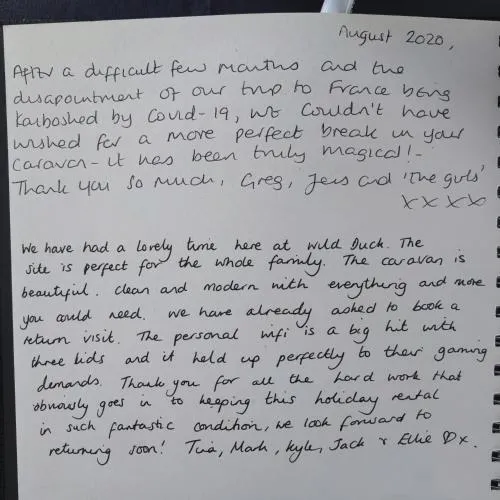 August 2020,
After a difficult few months and the
disapointment of our trip to France being
kaiboshed by Covid-19, we couldn't have
wished for a more perfect break in your
caravan - it has been truly magical! -
Thank you so much, Greg, Jens and 'the girls'
x x x x
We have had a lovely time here at Wild Duck. The
site is perfect for the whole family. The caravan is
beautiful. clean and modern with everything and more
you could need. we have already asked to book a
return visit. The personal wifi is a big hit with
three kids and it held up perfectly to their gaming
demands. Thank you for all the hard work that
obviously goes in to keeping this holiday rental
in such fantastic condition, we look forward to
returning soon! Tina, Mark, Kyle, Jack & Ellie ♡x.